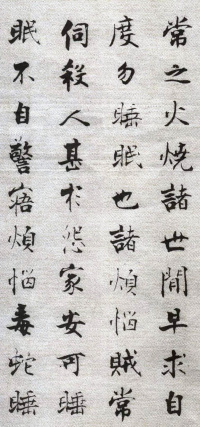 常之火燒諸世間早求自
度勿睡眠也諸煩惱賊常
伺殺人甚於怨家安可睡
眠不自警寤煩惱毒蛇睡